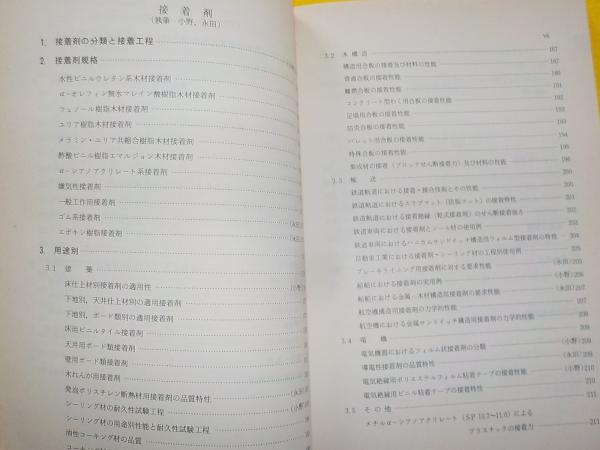 接着剤
(執筆 小野,永田)
1. 接着剤の分類と接着工程
2. 接着剤規格
水性ビニルウレタン系木材接着剤
α-オレフィン無水マレイン酸樹脂木材接着剤
フェノール樹脂木材接着剤
ユリア樹脂木材接着剤
メラミン・ユリア共縮合樹脂木材接着剤
酢酸ビニル樹脂エマルジョン木材接着剤
α-シアノアクリレート系接着剤
嫌気性接着剤
一般工作用接着剤
ゴム系接着剤
エポキシ樹脂接着剤
3. 用途別
3.1 建築
床仕上材別接着剤の適用性
下地別,天井仕上材別の適用接着剤
下地別,ボード類別の適用接着剤
床用ビニルタイル接着剤
天井用ボード類接着剤
壁用ボード類接着剤
木れんが用接着剤
発泡ポリスチレン断熱材用接着剤の品質特性
シーリング材の耐久性試験工程
シーリング材の用途別性能と耐久性試験工程
油性コーキング材の品質
vii
3.2 木構造 187
構造用合板の接着及び材料の性能 187
普通合板の接着性能 190
難燃合板の接着性能 191
コンクリート型わく用合板の接着性能
足場用合板の接着性能
防炎合板の接着性能
パレット用合板の接着性能 194
特殊合板の接着性能 195
集成材の接着(ブロックせん断接着力)及び材料の性能 196
3.3 輸送 200
鉄道軌道における接着・接合技術とその性能 200
鉄道軌道におけるスラブマット(防振マット)の接着特性 201
鉄道軌道における接着絶縁(乾式接着剤)のせん断接着強さ
鉄道車両における接着剤とシール材の使用例
鉄道車両におけるハニカムサンドイッチ構造用フィルム型接着剤の特性 204
自動車工業における接着剤・シーリング材の工程別使用例 204
ブレーキライニング用接着剤に対する要求性能 (永田)205
船舶における接着剤の実用例 (小野)206
船舶における金属-木材構造用接着剤の要求性能 (永田)207
航空機構造用接着剤の力学的性能 207
航空機における金属サンドイッチ構造用接着剤の力学的性能 208
3.4 電機 209
電気機器におけるフィルム状接着剤の分類 (小野)209
導電性接着剤の品質特性 (永田)209
電気絶縁用ポリエステルフィルム粘着テープの接着性能 (小野)210
電気絶縁用ビニル粘着テープの接着特性 210
3.5 その他 211
メチルα-シアノアクリレート(SP 10.7~11.0)による
プラスチックの接着力 211